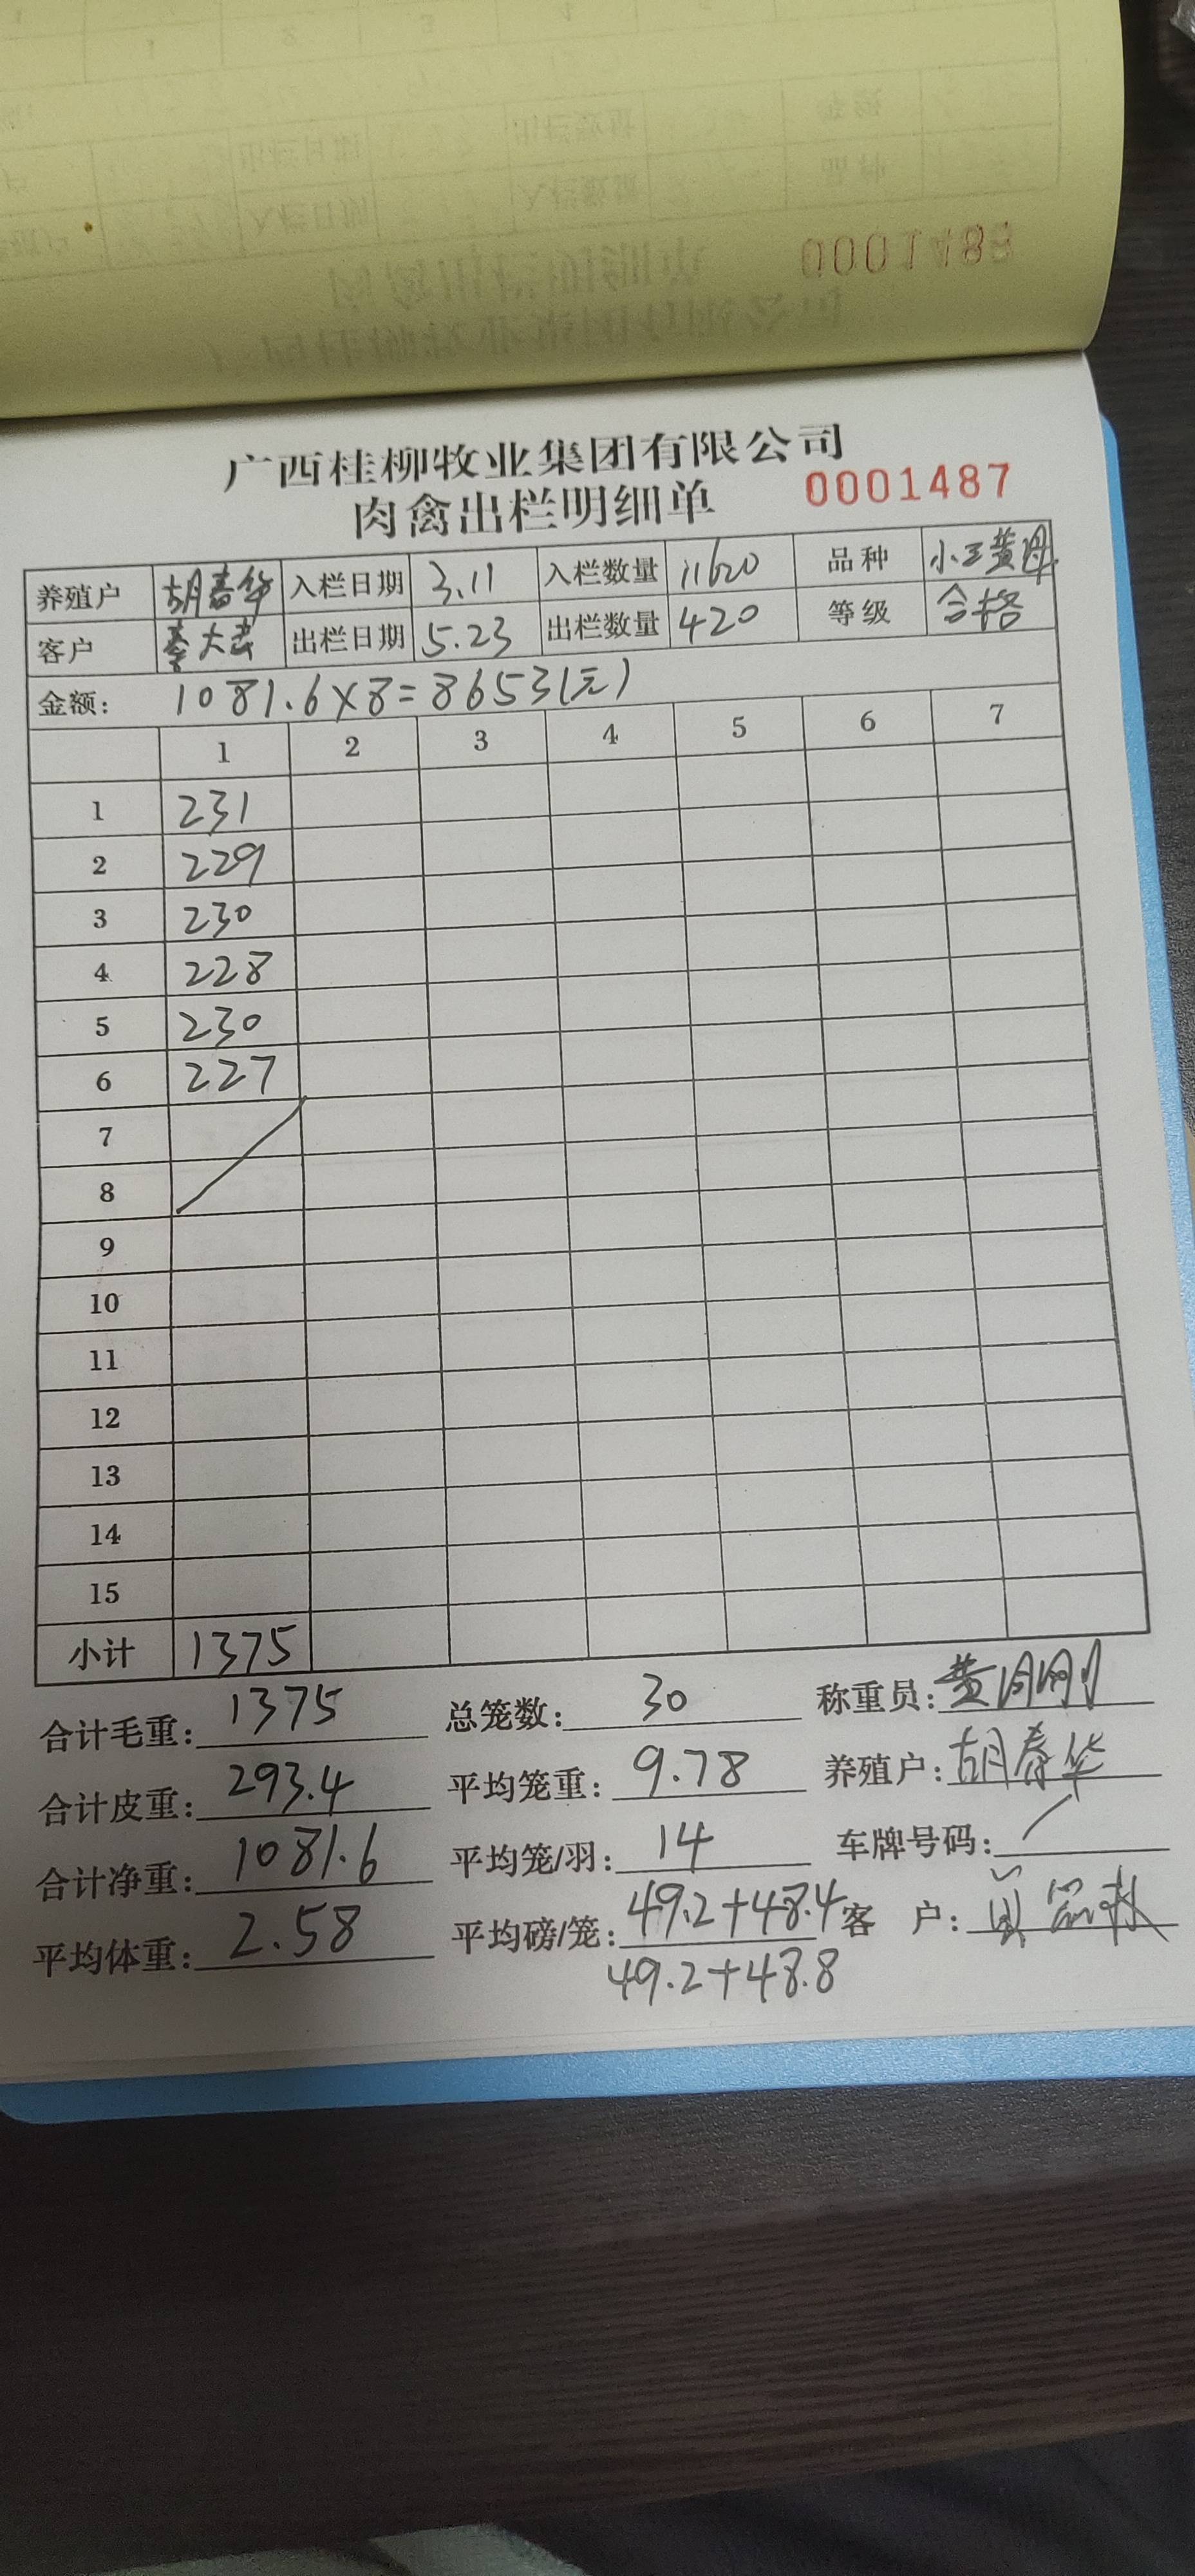 0001488
广西桂柳牧业集团有限公司
肉禽出栏明细单 0001487
养殖户 胡春华 入栏日期 3.11 入栏数量 11620 品种
客户 大 出栏日期 5.23 出栏数量 420 等级 合格
金额: 1081.6×8=8653(元)
1 2 3 4 5 6 7
1 231
2 229
3 230
4 228
5 230
6 227
7
8
9
10
11
12
13
14
15
小计 1375
合计毛重: 1375 总笼数: 30 称重员: 黄
合计皮重: 293.4 平均笼重: 9.78 养殖户: 胡春华
合计净重: 1081.6 平均笼/羽: 14 车牌号码: /
平均体重: 2.58 平均磅/笼: 49.2+48.4 客 户:
49.2+48.8